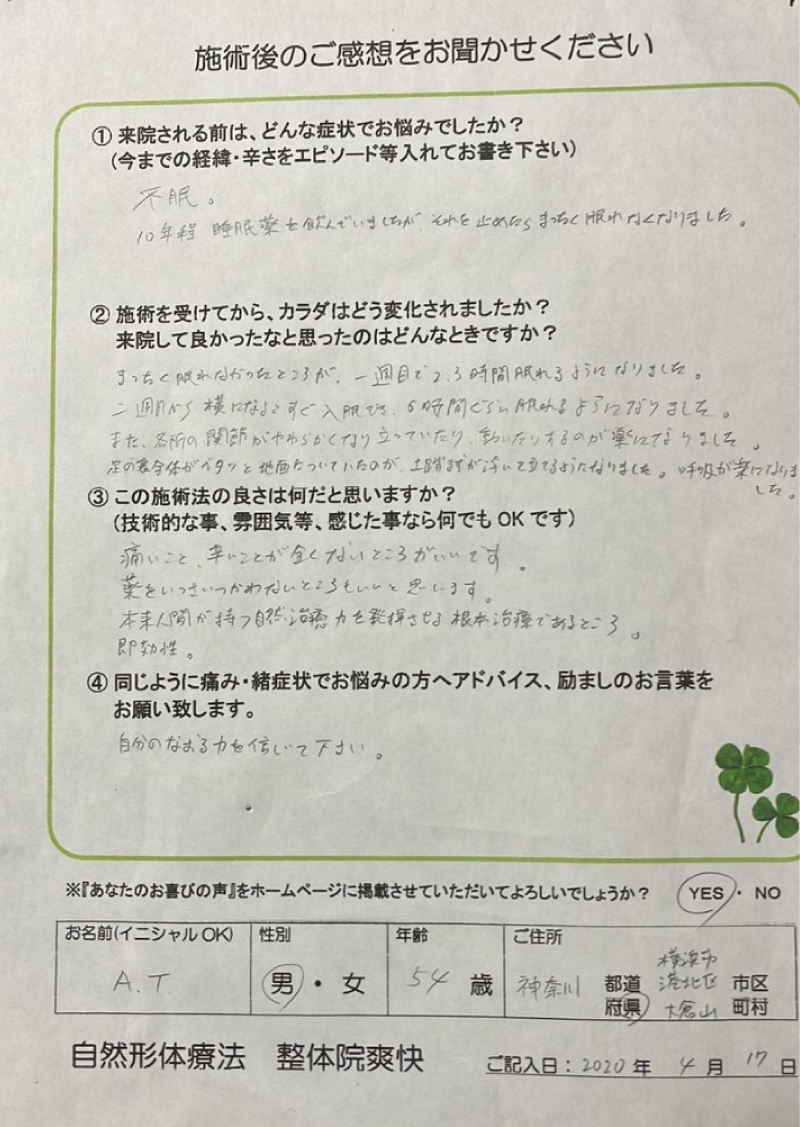 施術後のご感想をお聞かせください
① 来院される前は、どんな症状でお悩みでしたか？
(今までの経緯・辛さをエピソード等入れてお書き下さい)
不眠。
10年程 睡眠薬を飲んでいましたが、それを止めたらまったく眠れなくなりました。
② 施術を受けてから、カラダはどう変化されましたか？
来院して良かったなと思ったのはどんなときですか？
まったく眠れなかったところが、一週目で2.3時間眠れるようになりました。
二週目から横になるとすぐ入眠でき、6時間ぐらい眠れるようになりました。
また、各所の関節がやわらかくなり立っていたり、動いたりするのが楽になりました。
足の裏全体がベタッと地面についていたのが、土踏まずが浮いて立てるようになりました。呼吸が楽になりま
した。
③ この施術法の良さは何だと思いますか？
(技術的な事、雰囲気等、感じた事なら何でもOKです)
痛いこと、辛いことが全くないところがいいです。
薬をいっさいつかわないところもいいと思います。
本来人間が持つ自然治癒力を発揮させる根本治療であるところ。
即効性。
④ 同じように痛み・緒症状でお悩みの方へアドバイス、励ましのお言葉を
お願い致します。
自分のなおる力を信じて下さい。
※『あなたのお喜びの声』をホームページに掲載させていただいてよろしいでしょうか？ YES・NO
お名前(イニシャルOK) 性別 年齢 ご住所
A.T. 男・女 54歳 神奈川 都道府県 横浜市港北区大倉山 市区町村
自然形体療法 整体院爽快
ご記入日：2020年 4月 17日